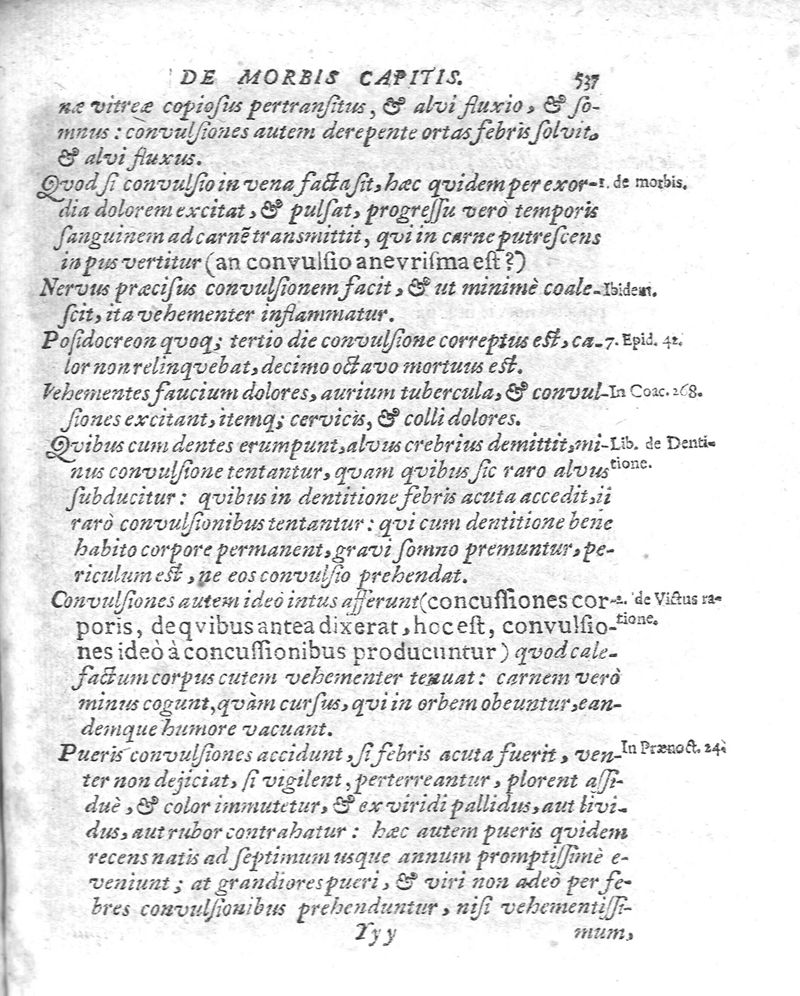 DE MORBIS CAPITIS. 537
næ vitreæ copiosus pertransitus, & alvi fluxio, & so-
mnus: convulsiones autem derepente ortas febris solvit,
& alvi fluxus.
Qvod si convulsio in vena facta sit, hæc quidem per exor- 1. de morbis.
dia dolorem excitat, & pulsat, progressu verò temporis
sanguinem ad carnẽ transmittit, qui in carne putrescens
in pus vertitur (an convulsio anevrisma est?)
Nervus præcisus convulsionem facit, & ut minimè coale- Ibidem.
scit, ita vehementer inflammatur.
Posidocreon quoq; tertio die convulsione correptus est, ca- 7. Epid. 42.
lor non relinqvebat, decimo octavo mortuus est.
Vehementes faucium dolores, aurium tubercula, & convul- In Coac. 268.
siones excitant, itemq; cervicis, & colli dolores.
Qvibus cum dentes erumpunt, alvus crebrius demittit, mi- Lib. de Denti-
nus convulsione tentantur, qvam qvibus sic raro alvus tione.
subducitur: qvibus in dentitione febris acuta accedit, ii
rarò convulsionibus tentantur: qui cum dentitione bene
habito corpore permanent, gravi somno premuntur, pe-
riculum est, ne eos convulsio prehendat.
Convulsiones autem ideò intus afferunt (concussiones cor- 2. de Victus ra-
poris, de qvibus antea dixerat, hoc est, convulsio- tione.
nes ideò à concussionibus producuntur) quod cale-
factum corpus cutem vehementer tenuat: carnem verò
minus cogunt, qvàm cursus, qui in orbem obeuntur, ean-
demque humore vacuant.
Pueris convulsiones accidunt, si febris acuta fuerit, ven- In Prænoct. 24.
ter non dejiciat, si vigilent, perterreantur, plorent assi-
duè, & color immutetur, & ex viridi pallidus, aut livi-
dus, aut rubor contrahatur: hæc autem pueris qvidem
recens natis ad septimum usque annum promptissimè e-
veniunt; at grandiores pueri, & viri non adeò per fe-
bres convulsionibus prehenduntur, nisi vehementissi-
Yyy mum,